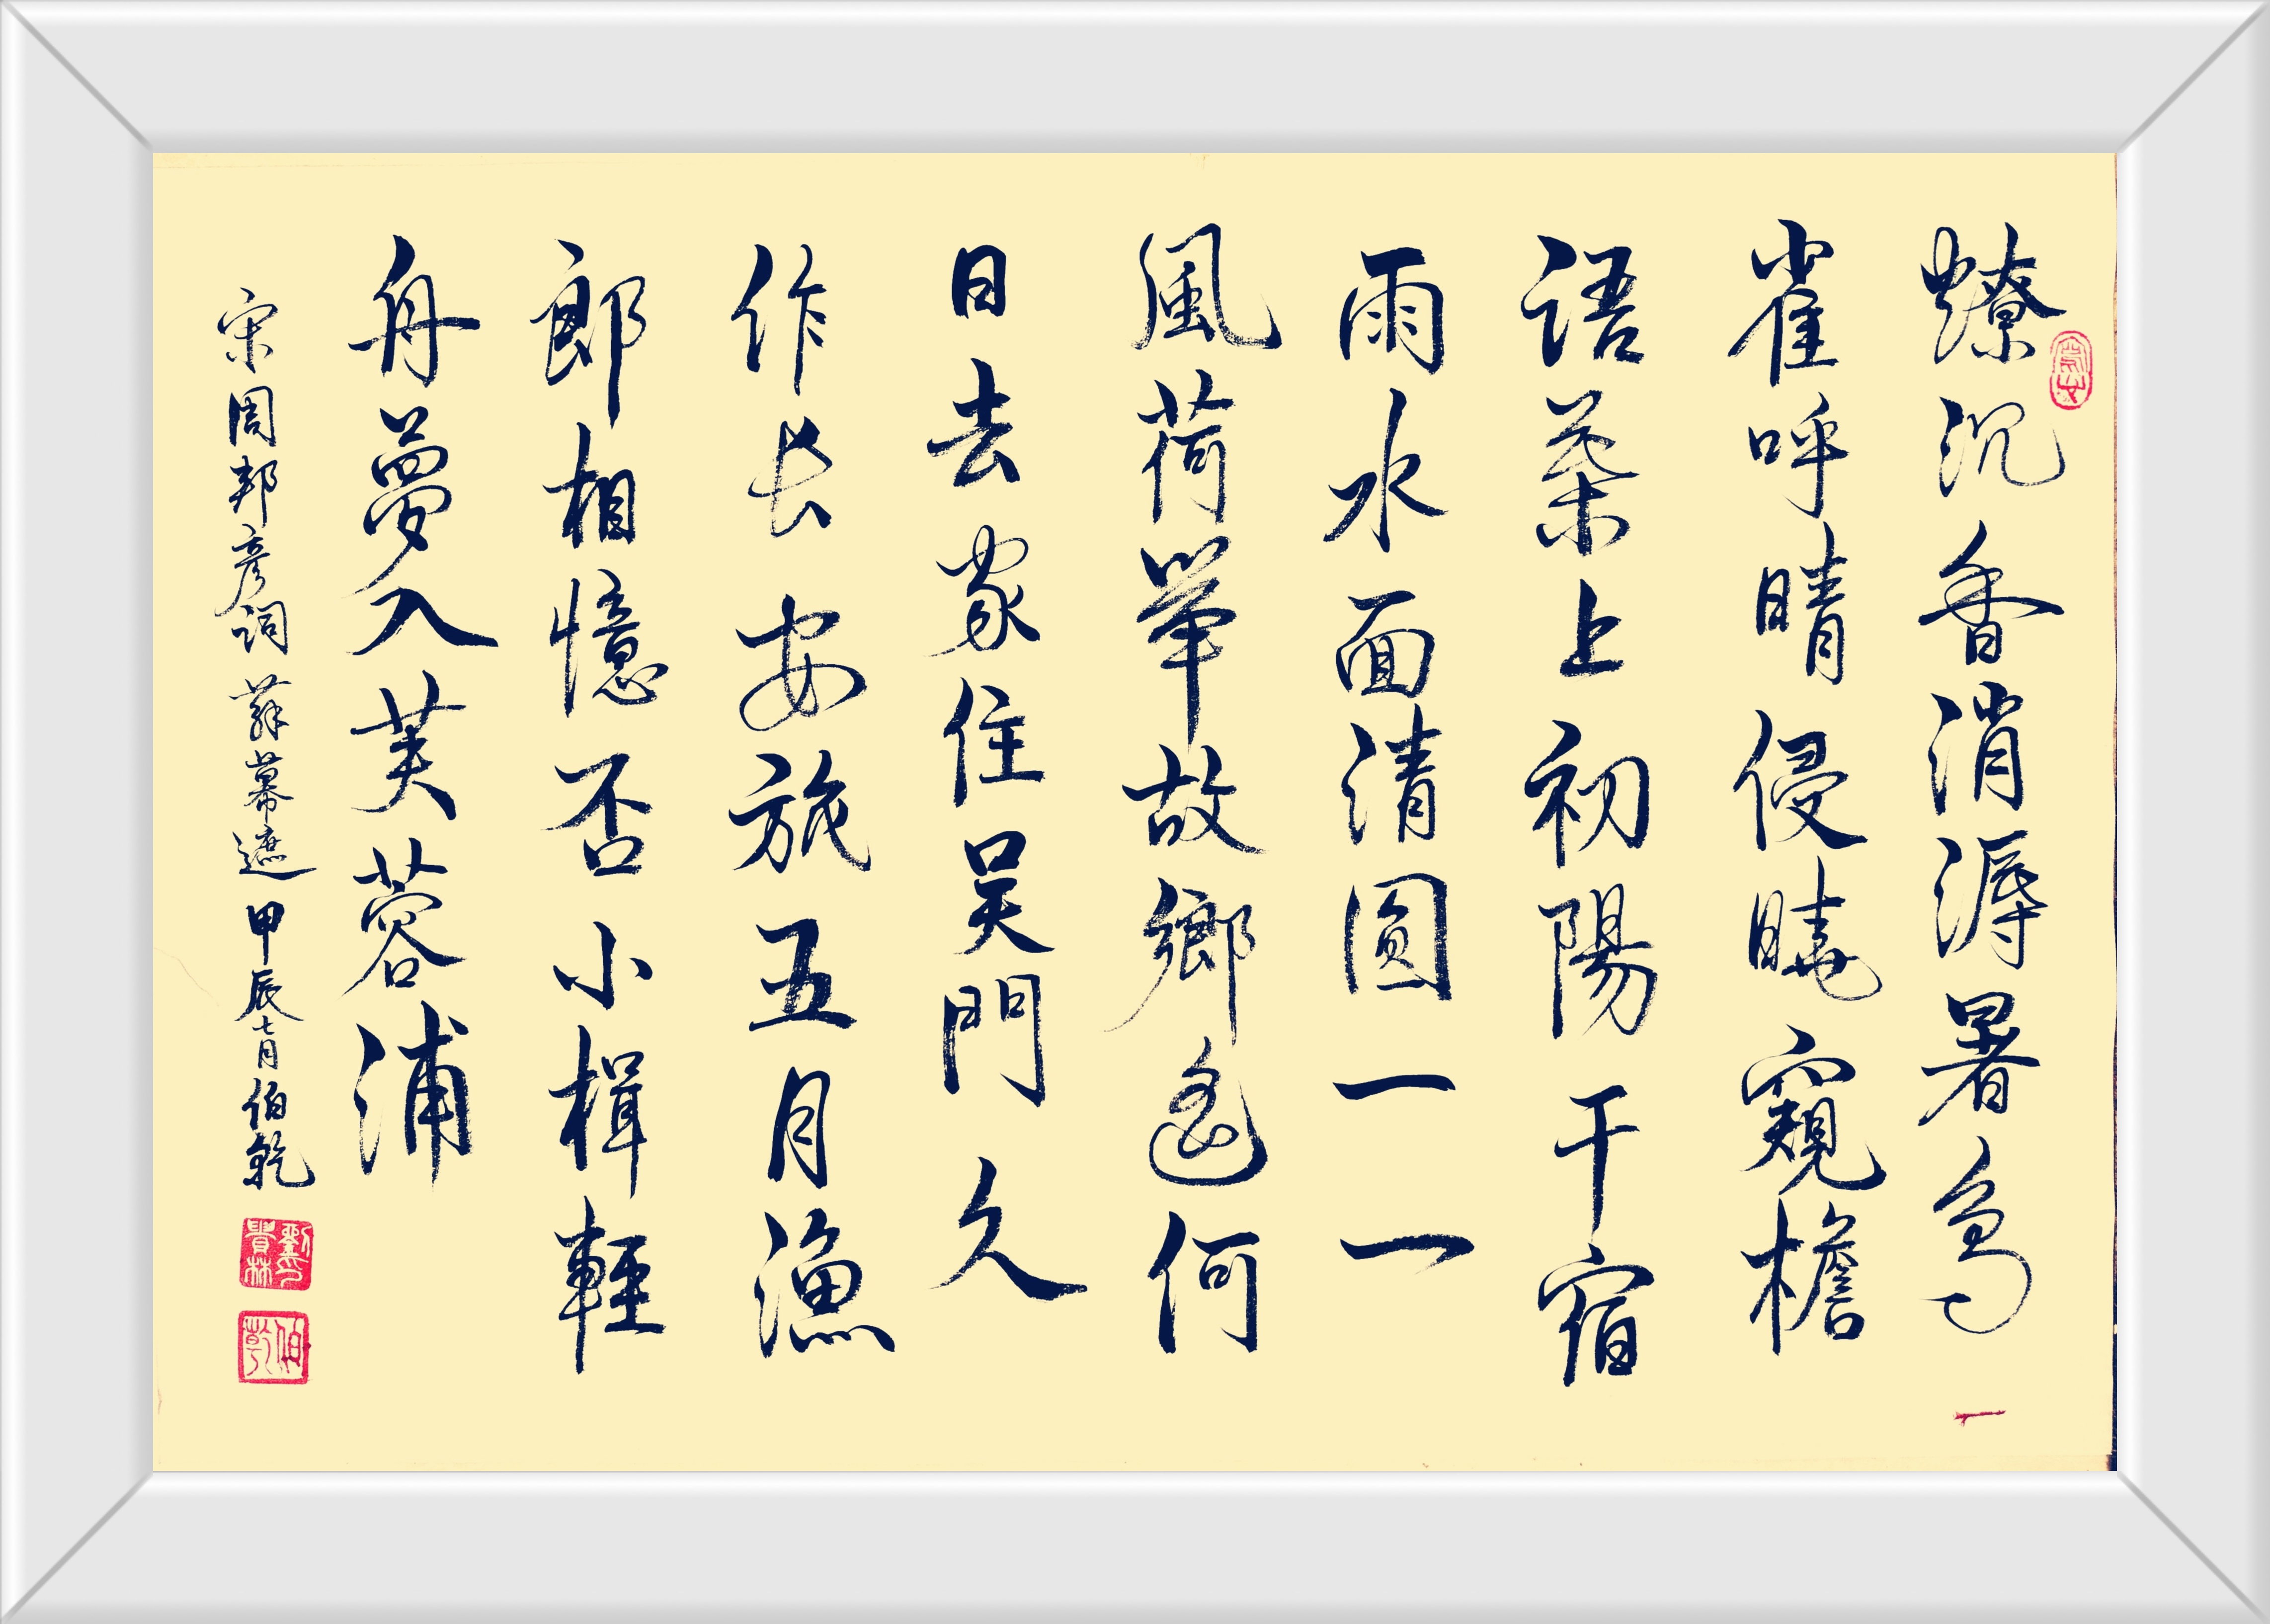 燎沉香消溽暑鳥
雀呼晴侵曉窺檐
语葉上初陽干宿
雨水面清圓一一
風荷舉故鄉遙何
日去家住吳門久
作长安旅五月漁
郎相憶否小楫輕
舟夢入芙蓉浦
宋周邦彥詞 蘇幕遮 甲辰七月伯乾
劉印貴林
伯乾